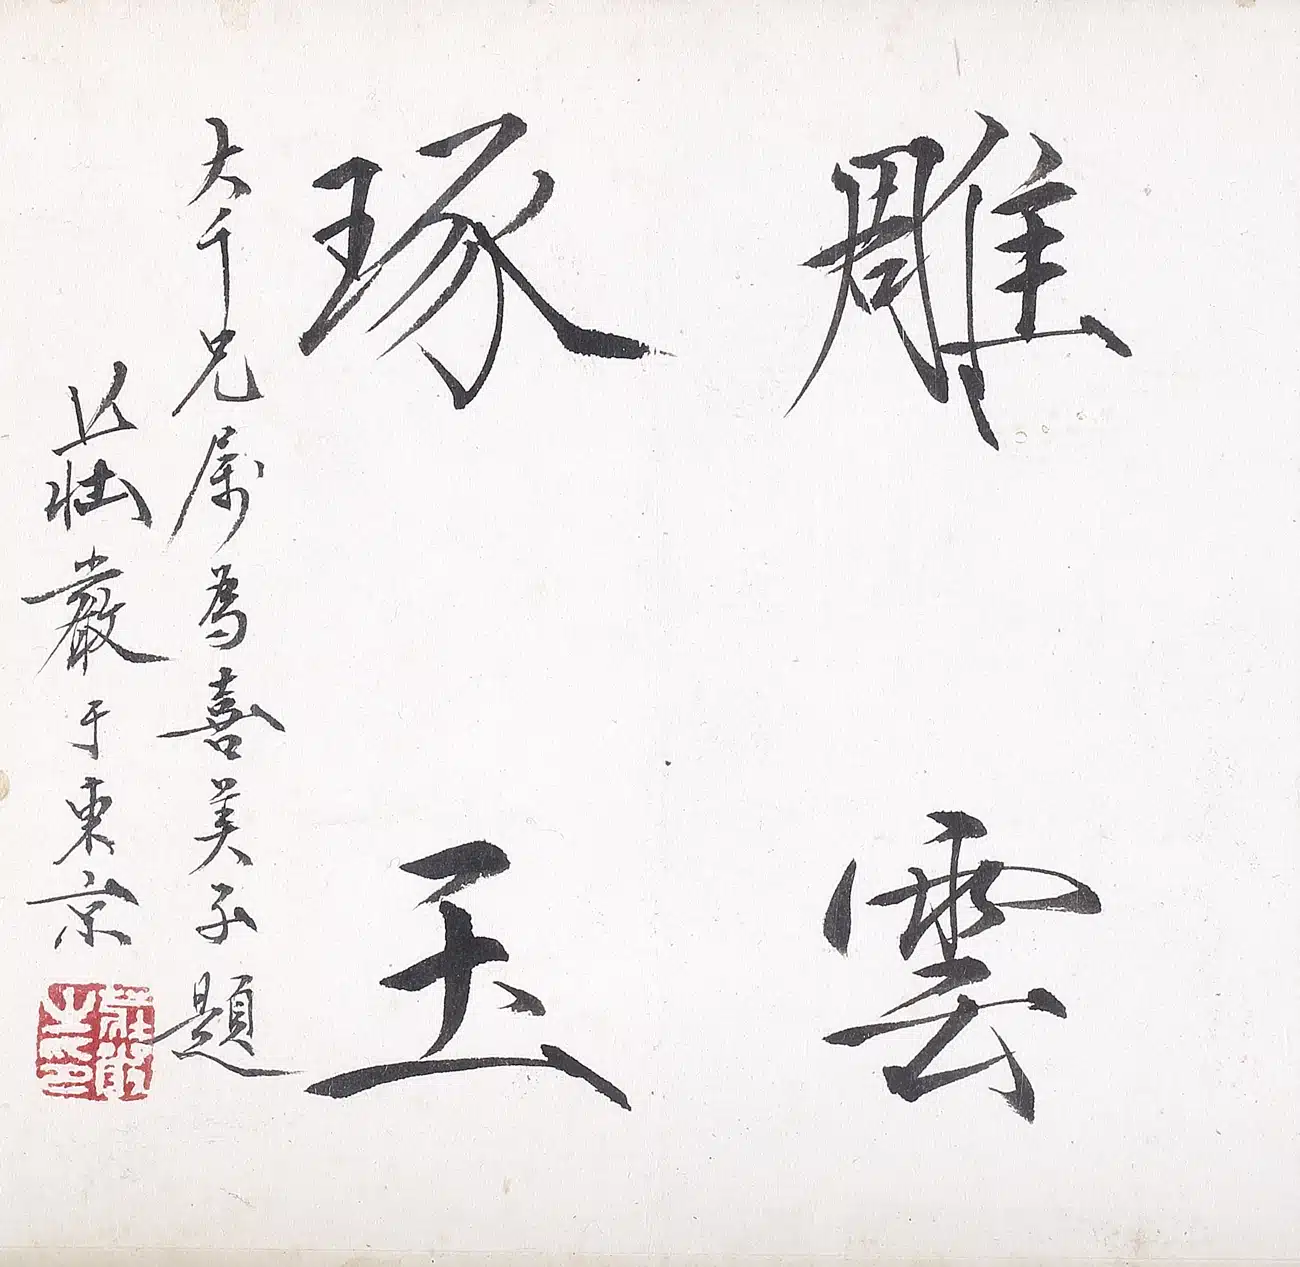 雕雲
琢玉
大千兄属為喜美子題
莊嚴于東京